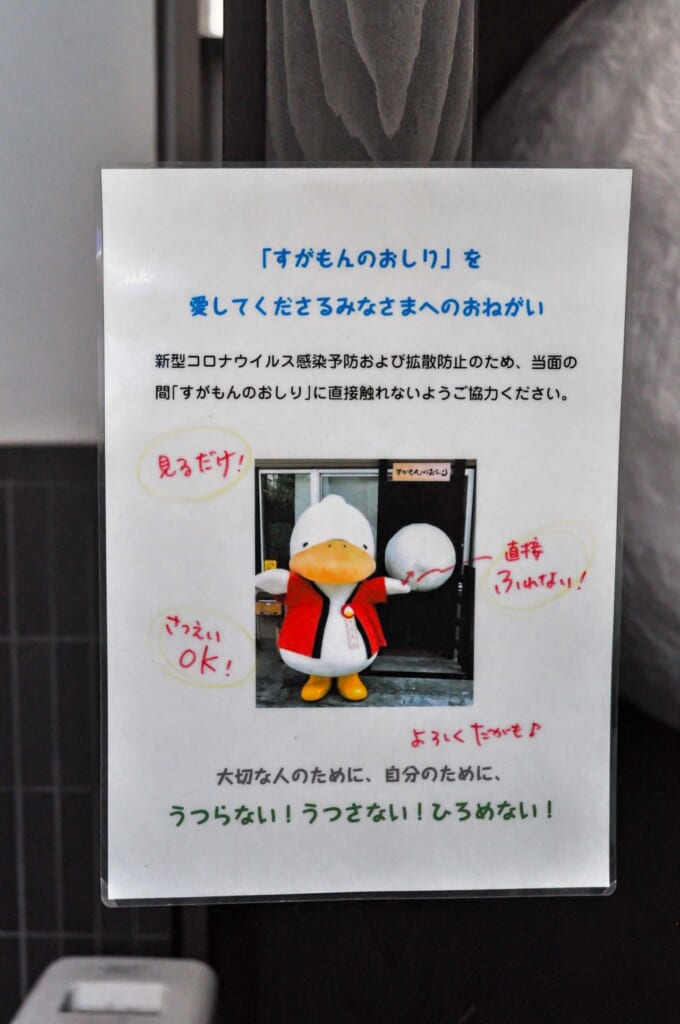 「すがもんのおしり」を
愛してくださるみなさまへのおねがい
新型コロナウイルス感染予防および拡散防止のため、当面の
間「すがもんのおしり」に直接触れないようご協力ください。
見るだけ!
すがもんのおしり
直接
ふれない!
さつえい
OK!
よろしくだがも♪
大切な人のために、自分のために、
うつらない!うつさない!ひろめない!